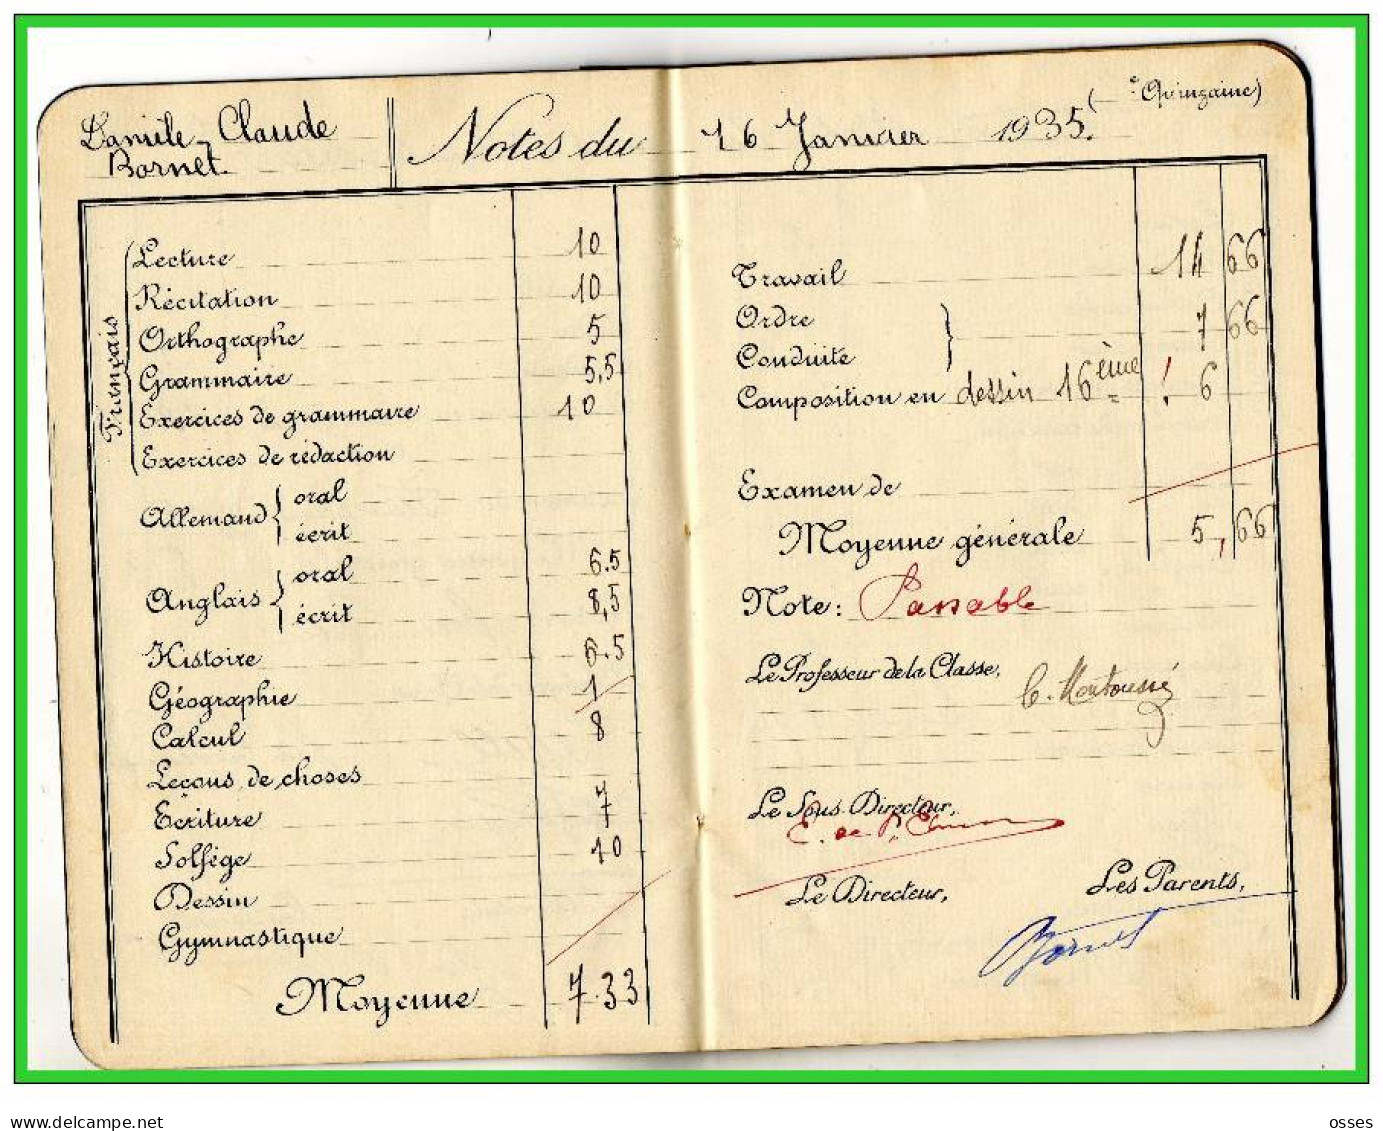 Danièle Claude
Bornet.
Notes du 16 Janvier 1935. ( e Quinzaine)
Français
Lecture 10
Récitation 10
Orthographe 5
Grammaire 5,5
Exercices de grammaire 10
Exercices de rédaction
Allemand { oral
écrit
Anglais { oral 6.5
écrit 8,5
Histoire 6.5
Géographie 1
Calcul 8
Leçons de choses
Ecriture 7
Solfège 10
Dessin
Gymnastique
Moyenne 7.33
Travail 14 66
Ordre
Conduite } 7 66
Composition en dessin 16ème ! 6
Examen de
Moyenne générale 5,66
Note: Passable
Le Professeur de la Classe,
Le Sous-Directeur,
Le Directeur,
Les Parents,
Bornet
delcampe.net
osses